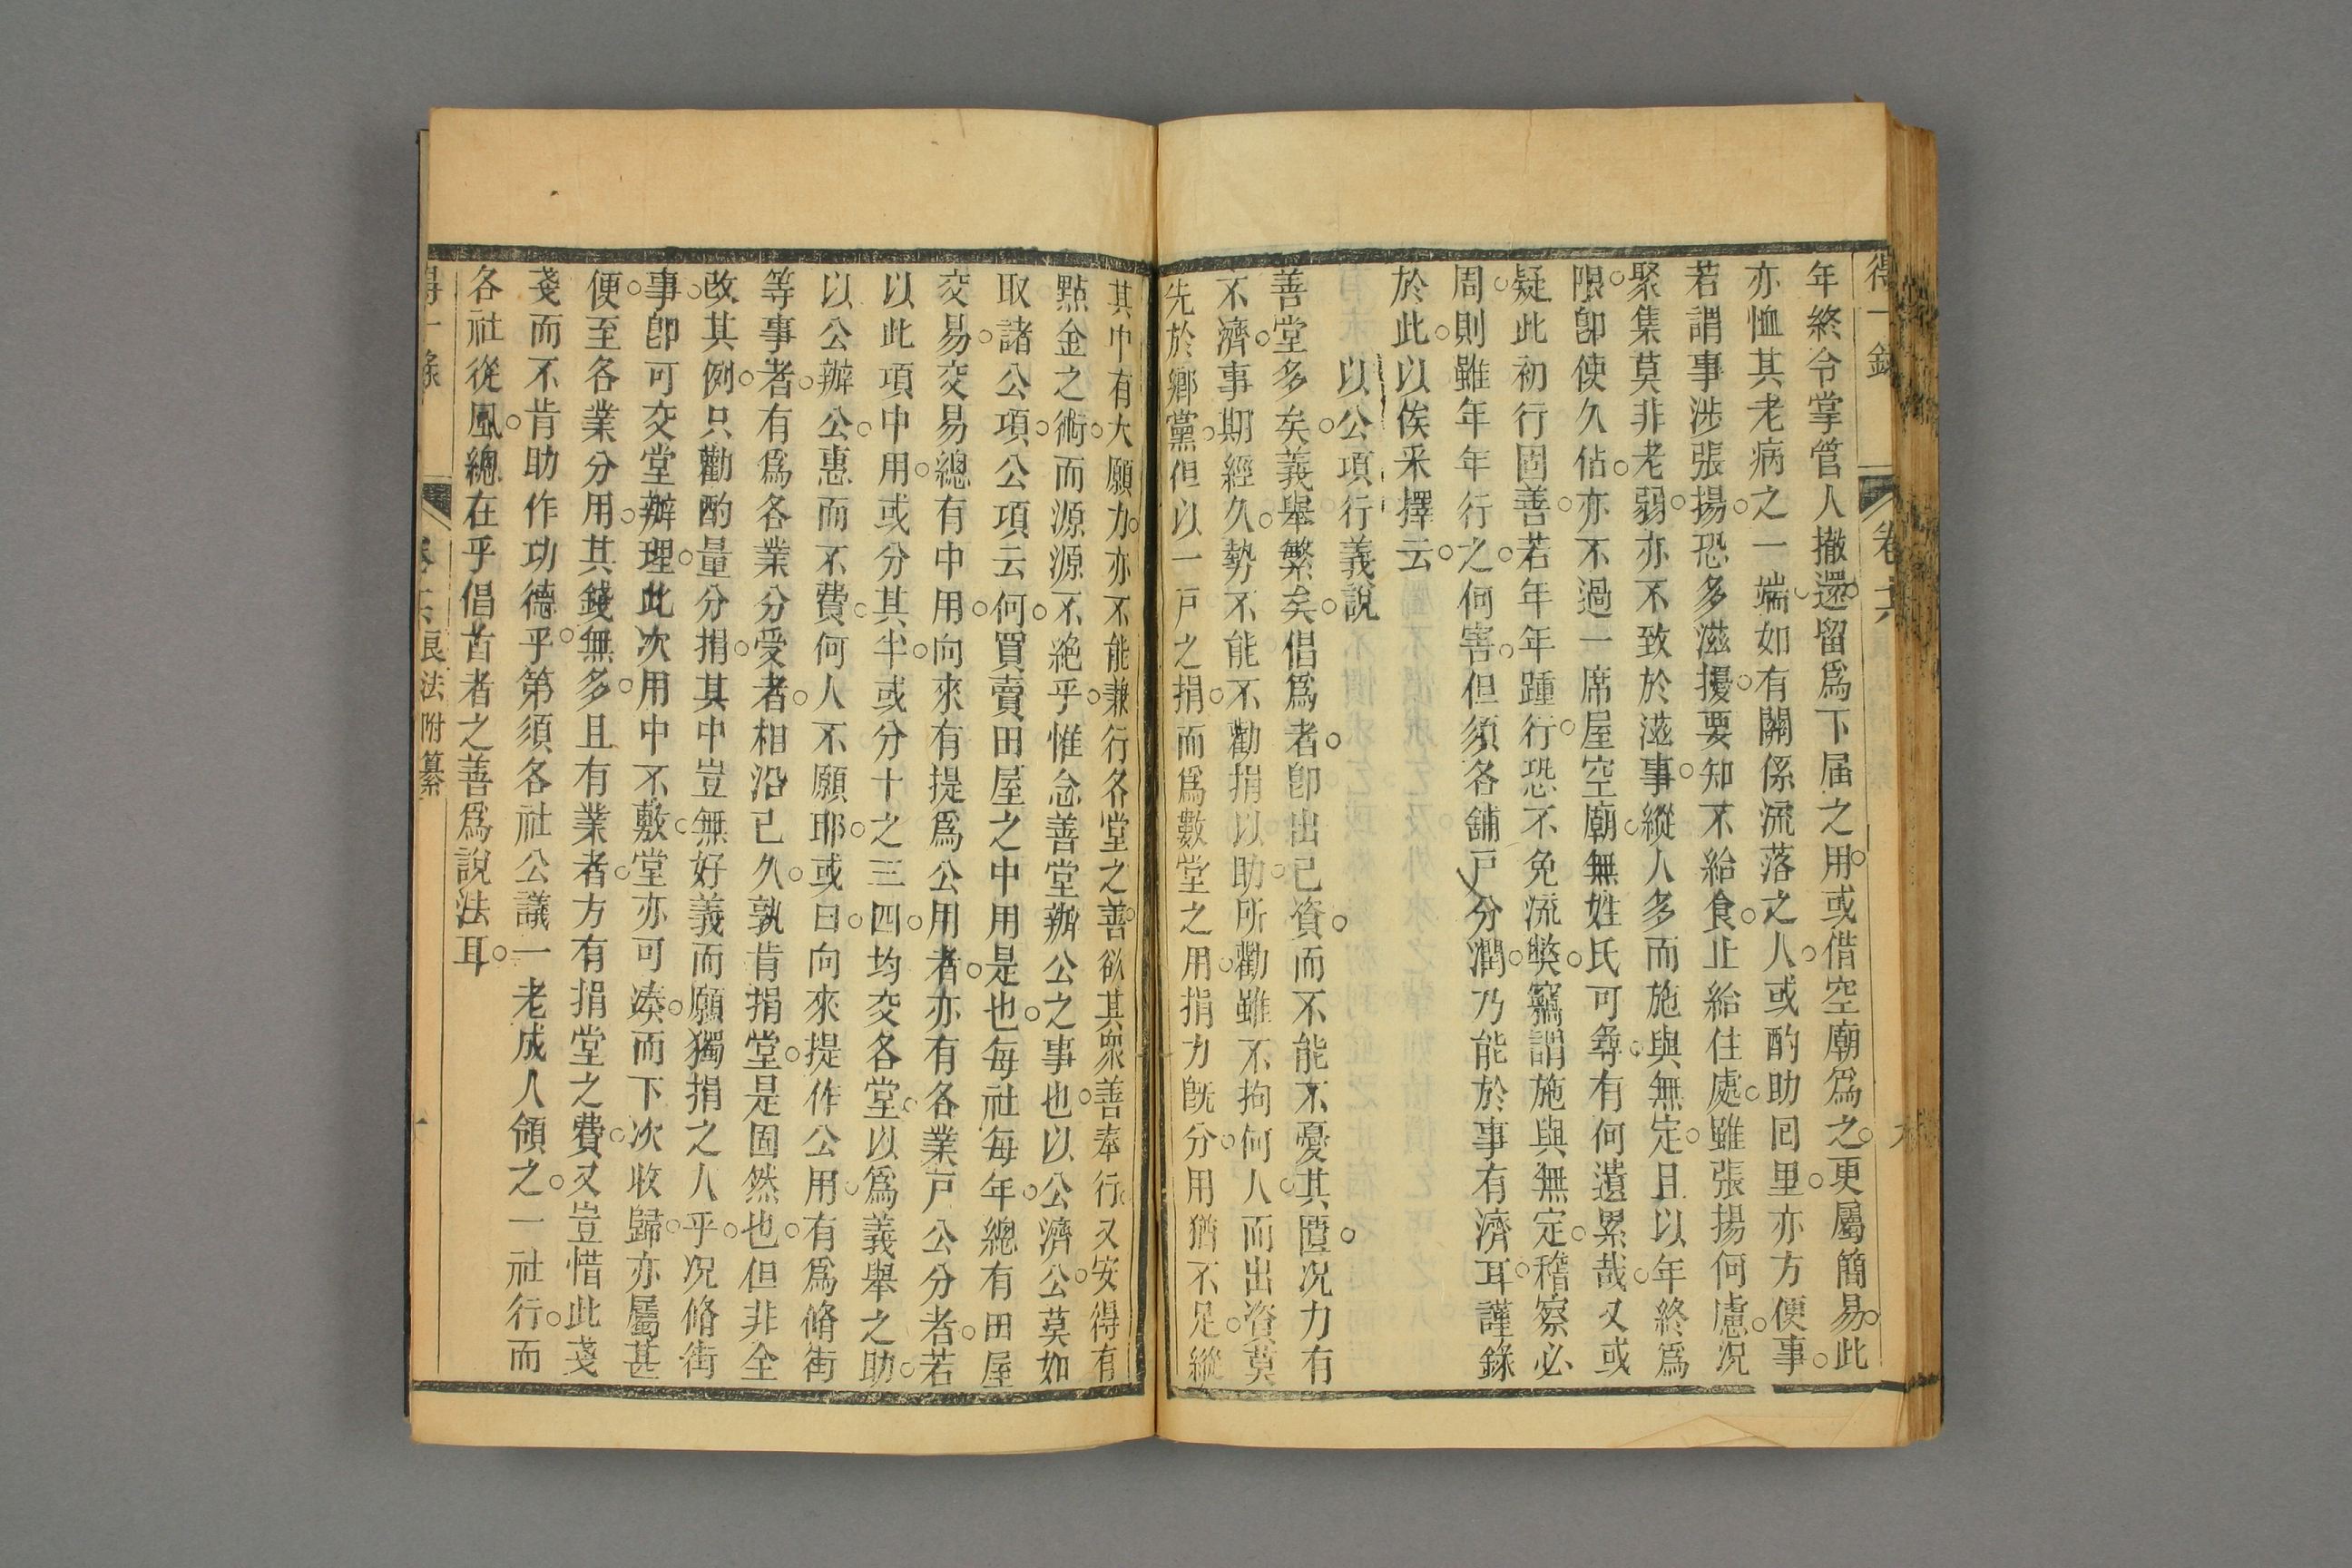 得一錄
卷六
年終令掌管人撤還留爲下届之用或借空廟爲之更屬簡易此
亦恤其老病之一端如有關係流落之人或酌助回里亦方便事
若謂事涉張揚恐多滋擾要知不給食止給住處雖張揚何慮况
聚集莫非老弱亦不致於滋事縱人多而施與無定且以年終爲
限卽使久佔亦不過一席屋空廟無姓氏可尋有何遺累哉又或
疑此初行固善若年年踵行恐不免流弊竊謂施與無定稽察必
周則雖年年行之何害但須各舖戸分潤乃能於事有濟耳謹錄
於此以俟采擇云
以公項行義說
善堂多矣義舉繁矣倡爲者卽出已資而不能不憂其匱况力有
不濟事期經久勢不能不勸捐以助所勸雖不拘何人而出資莫
先於鄉黨但以一戸之捐而爲數堂之用捐力既分用猶不足縱
其中有大願力亦不能兼行各堂之善欲其衆善奉行又安得有
點金之術而源源不絶乎惟念善堂辦公之事也以公濟公莫如
取諸公項公項云何買賣田屋之中用是也每社每年總有田屋
交易交易總有中用向來有提爲公用者亦有各業戸公分者若
以此項中用或分其半或分十之三四均交各堂以爲義舉之助
以公辦公惠而不費何人不願耶或曰向來提作公用有爲脩街
等事者有爲各業分受者相沿已久孰肯捐堂是固然也但非全
改其例只勸酌量分捐其中豈無好義而願獨捐之人乎况脩街
事卽可交堂辦理此次用中不敷堂亦可凑而下次收歸亦屬甚
便至各業分用其錢無多且有業者方有捐堂之費又豈惜此戔
戔而不肯助作功德乎第須各社公議一老成人領之一社行而
各社從風總在乎倡首者之善爲說法耳
得一錄
卷六
良法附纂